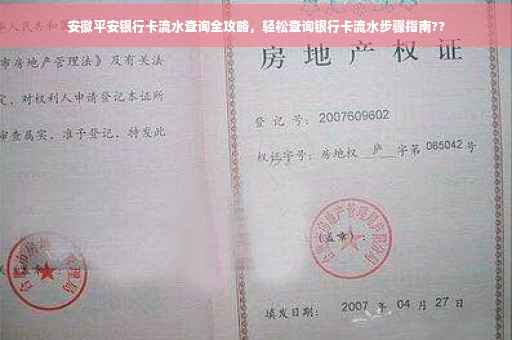 安徽平安银行卡流水查询全攻略，轻松查询银行卡流水步骤指南??
华人民共和
市房地产管理法》及有关法
定，对权利人申请登记本证所
审查属实，准予登记，特发此
房地产权证
登记号：2007609602
权证字号：房地权 庐 字第 065042 号
(盖章)：
填发日期：2007 年 04 月 27 日